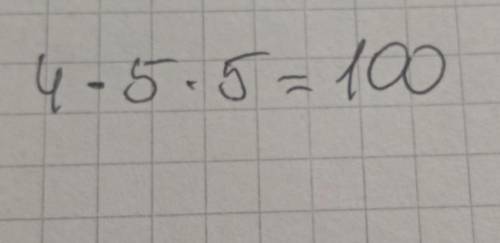 4 - 5 · 5 = 100